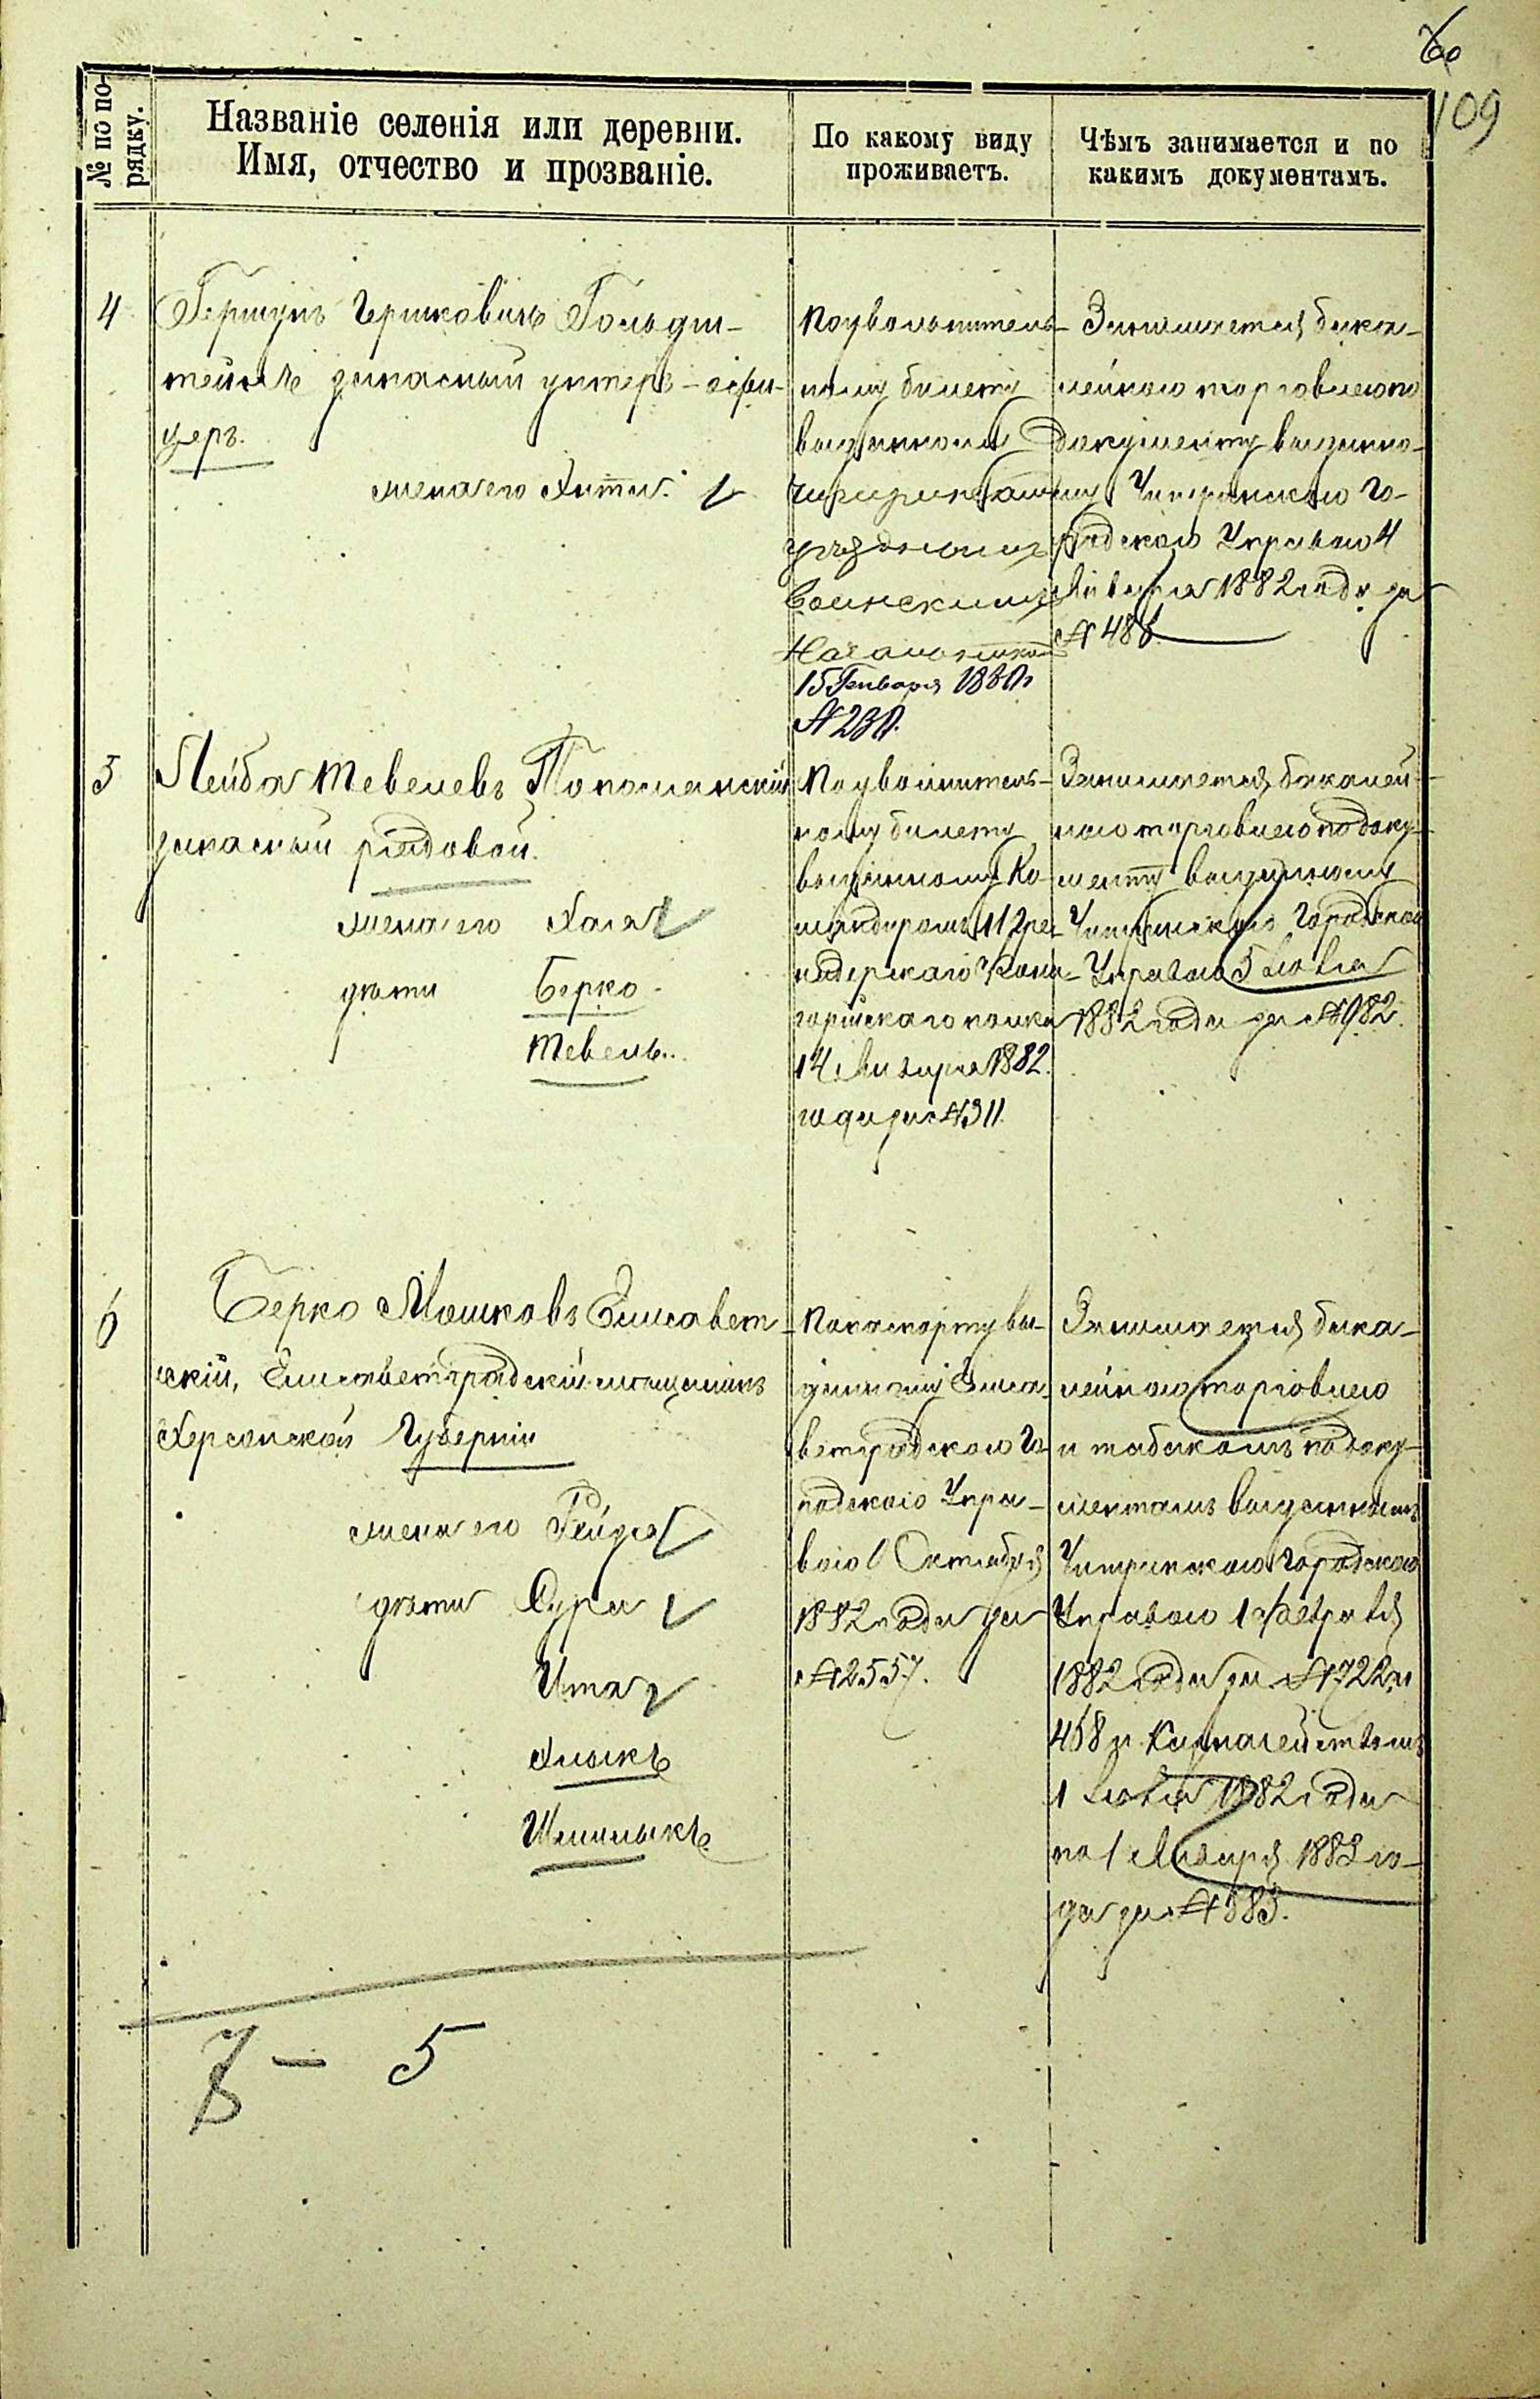 60
109
№ по по-
рядку.
Названіе селенія или деревни.
Имя, отчество и прозваніе.
По какому виду
проживаетъ.
Чѣмъ занимается и по
какимъ документамъ.
4
Гершунъ Гершковичъ Гольдш-
тейнъ запасный унтеръ-офи-
церъ.
жена его
По увольнитель-
ному билету
выданному
Чигиринскимъ
уѣзднымъ
воинскимъ
Начальникомъ
15 Генваря 1880 г
№ 230.
Занимается бака-
лейною торговлею по
документу выданно-
му Чигиринскою Го-
родскою Управою 4
Января 1882 года за
№ 486
5
Лейба Тевелевъ
запасный рядовой.
жена его Хая
дѣти Берко
Тевель.
По увольнитель-
ному билету
выданному Ко-
мандиромъ 11 Гре-
надерскаго Фана-
горійскаго полка
14 Января 1882
года за № 311
Занимается бакалей-
ною торговлею по доку-
менту выданному
Чигиринскою Городскою
Управою 5 Іюля
1882 года за № 982.
6
Берко Мошковъ Елисавет-
скій, Елисаветградскій мѣщанинъ
Херсонской Губерніи
жена его Рейзя
дѣти Сура
Ита
Хаскѣ
По паспорту вы-
данному Елиса-
ветградскою Го-
родскою Упра-
вою 1 Октября
1882 года за
№ 2557.
Занимается бака-
лейною торговлею
и табакомъ по доку-
ментамъ выданнымъ
Чигиринскою Городскою
Управою 1 Февраля
1882 года за № 722 и
458 и Казначействомъ
1 Іюля 1882 года
по 1 Января 1883 го-
да за № 583.
7 - 5
8